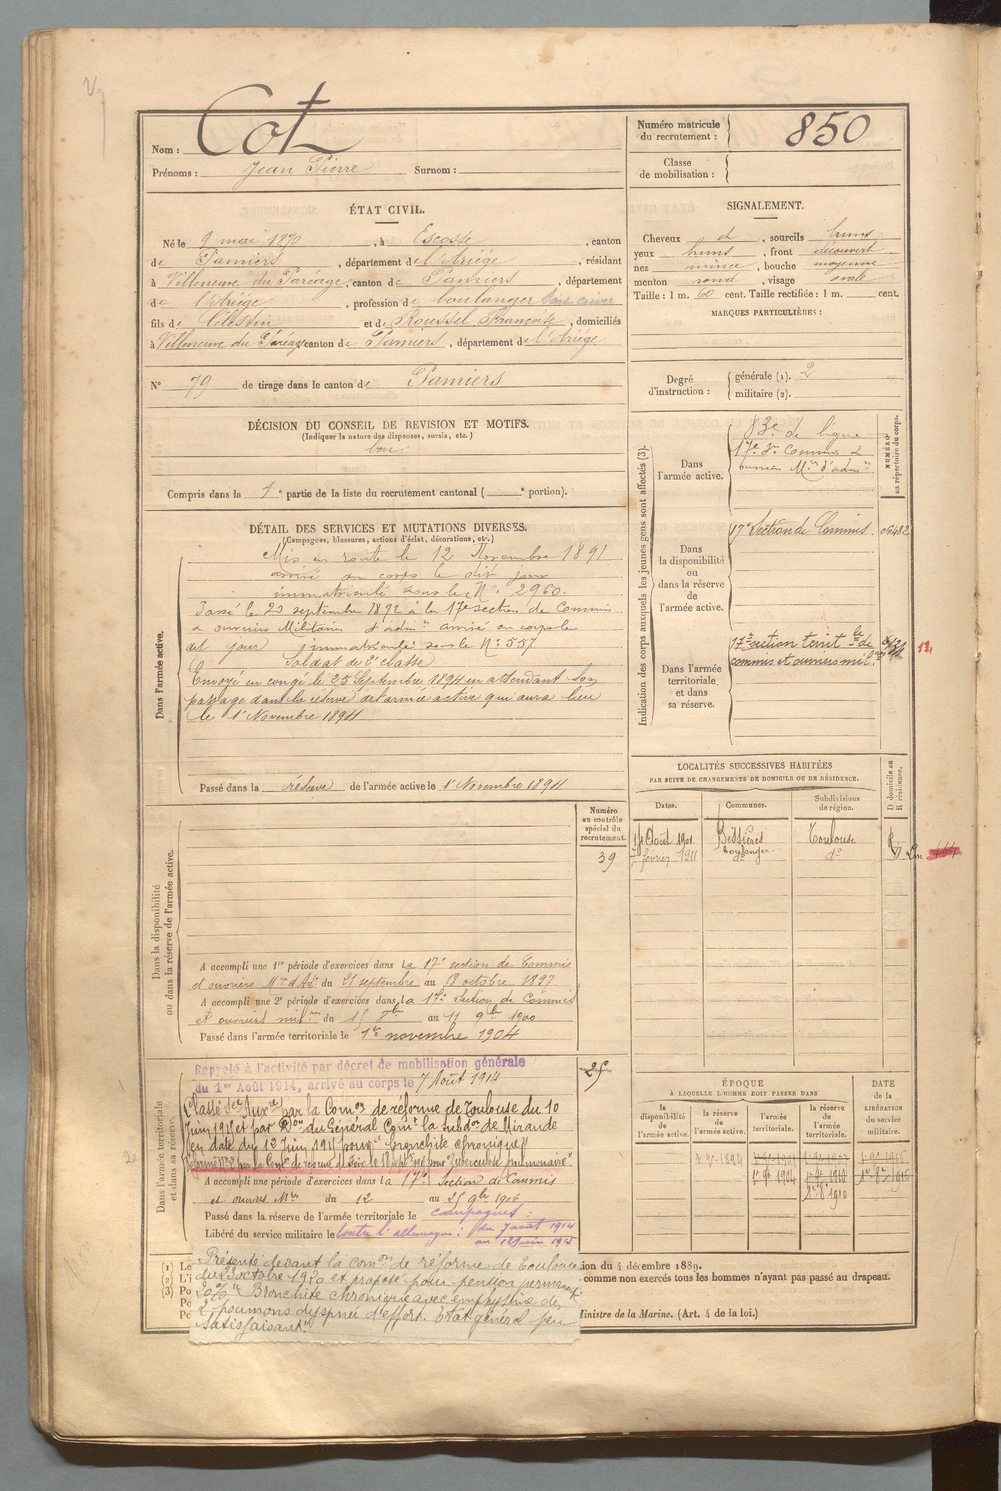 Nom : Cot
Prénoms : Jean Pierre Surnom :
Numéro matricule du recrutement : 850
Classe de mobilisation :
ÉTAT CIVIL.
Né le 9 mai 1870, à Escosse, canton
de Pamiers, département de l'Ariége, résidant
à Villeneuve du Paréage, canton de Pamiers, département
de l'Ariége, profession de boulanger
fils de Célestin et de Roussel Françoise, domiciliés
à Villeneuve du Paréage canton de Pamiers, département de l'Ariége
N° 79 de tirage dans le canton de Pamiers
SIGNALEMENT.
Cheveux et, sourcils bruns
yeux bruns, front découvert
nez mince, bouche moyenne
menton rond, visage ovale
Taille : 1 m. 60 cent. Taille rectifiée : 1 m. cent.
MARQUES PARTICULIÈRES :
Degré d'instruction : générale (1). 2
militaire (2).
DÉCISION DU CONSEIL DE REVISION ET MOTIFS.
(Indiquer la nature des dispenses, sursis, etc.)
bon
Compris dans la 1e partie de la liste du recrutement cantonal ( e portion).
DÉTAIL DES SERVICES ET MUTATIONS DIVERSES.
(Campagnes, blessures, actions d'éclat, décorations, etc.)
Dans l'armée active.
Mis en route le 12 Novembre 1891
arrivé au corps le dit jour
immatriculé sous le N° 2960.
Passé le 23 septembre 1892 à la 17e section de Commis
& ouvriers Militaires d'admon arrivé au corps le
dit jour immatriculé sous le N° 557
Soldat de 2e classe
Envoyé en congé le 25 Septembre 1894 en attendant son
passage dans la réserve de l'armée active qui aura lieu
le 1er Novembre 1894
Passé dans la réserve de l'armée active le 1er Novembre 1894
Indication des corps auxquels les jeunes gens sont affectés (3).
NUMÉRO au répertoire du corps.
Dans l'armée active.
83e de ligne
17e Son Commis &
ouvriers Mres d'admon
Dans la disponibilité ou dans la réserve de l'armée active.
17e Section de Commis. 06482
Dans l'armée territoriale et dans sa réserve.
17e section territle de
commis et ouvriers mil.
13.
LOCALITÉS SUCCESSIVES HABITÉES
PAR SUITE DE CHANGEMENTS DE DOMICILE OU DE RÉSIDENCE.
Dates. Communes. Subdivisions de région. D domicile ou R résidence.
Août 1901 Bessières Toulouse
boulanger
février 1911 do do
Dans la disponibilité ou dans la réserve de l'armée active.
Numéro au contrôle spécial du recrutement.
39
A accompli une 1re période d'exercices dans la 17e section de Commis
et ouvriers Mres d'Adon du 21 septembre au 18 octobre 1897
A accompli une 2e période d'exercices dans la 17e Section de Commis
et ouvriers milres du 15 8bre au 11 9bre 1900
Passé dans l'armée territoriale le 1er novembre 1904
Dans l'armée territoriale et dans sa réserve.
25
Rappelé à l'activité par décret de mobilisation générale
du 1er Août 1914, arrivé au corps le 7 Août 1914
Classé Ser Auxre par la Comon de réforme de Toulouse du 10
Juin et par Don du Général Comt la subdon de Mirande
en date du 12 Juin pour "bronchite chronique"
Réformé par la Comon de réforme de pour "tuberculose pulmonaire"
A accompli une période d'exercices dans la 17e Section de Commis
et ouvriers Mres du 12 au 25 9bre 1906
Passé dans la réserve de l'armée territoriale le
Libéré du service militaire le
campagnes :
contre l'allemagne : du 7 août 1914
au 12 juin
ÉPOQUE
À LAQUELLE L'HOMME DOIT PASSER DANS
DATE DE LA LIBÉRATION du service militaire.
la disponibilité de l'armée active. la réserve de l'armée active. l'armée territoriale. la réserve de l'armée territoriale.
1er 9bre 1894 1er 9bre 1904
Présenté devant la comon de réforme de Toulouse
du 23 octobre 1920 et proposé pour pension permante
20% "Bronchite chronique avec emphysème des
2 poumons dyspnée d'effort. Etat général peu
satisfaisant"
(1) Le
(2) L'i
(3) Po
Po
Po
ion du 4 décembre 1889.
comme non exercés tous les hommes n'ayant pas passé au drapeau.
Ministre de la Marine. (Art. 4 de la loi.)